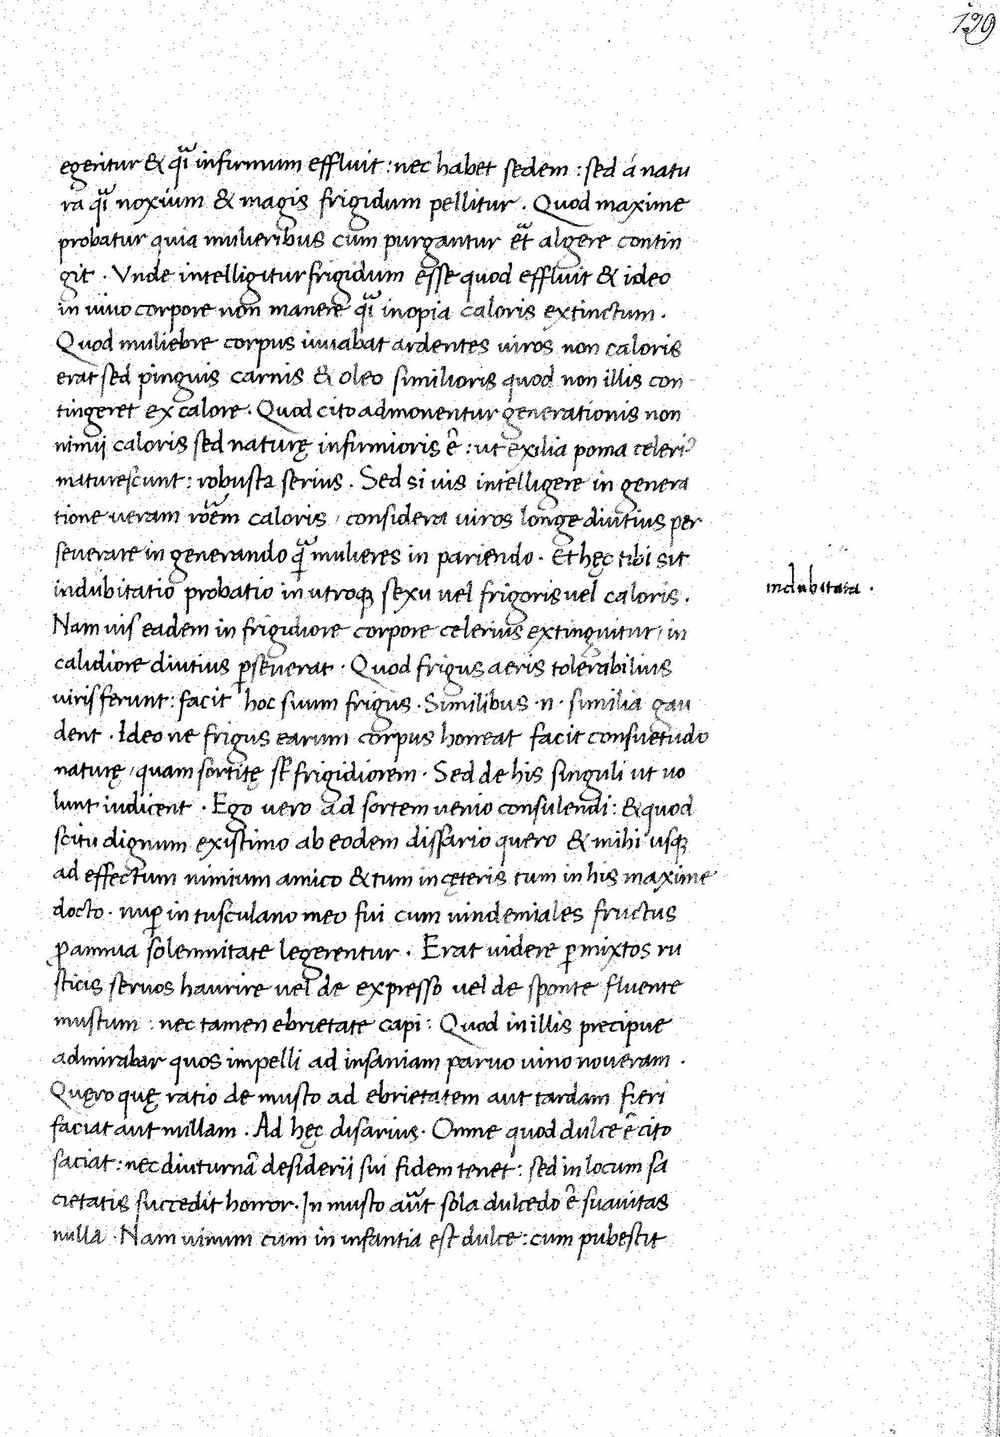 129
egeritur & q̃i infirmum effluit : nec habet sedem : sed á natu
ra q̃i noxium & magis frigidum pellitur . Quod maxime
probatur quia mulieribus cum purgantur et̃ algere contin
git . Vnde intelligitur frigidum esse quod effluit & ideo
in uiuo corpore non manere q̃i inopia caloris extinctum .
Quod muliebre corpus iuuabat ardentes uiros non caloris
erat sed pinguis carnis & oleo similioris quod non illis con
tingeret ex calore . Quod cito admonentur generationis non
nimij caloris sed naturę infirmioris ẽ : ut exilia poma celeri᾽
maturescunt : robusta serius . Sed si uis intelligere in genera
tione ueram rõem caloris , considera uiros longe diutius per
seuerare in generando q̃ mulieres in pariendo . Et hęc tibi sit
indubitatio probatio in utroqꝫ sexu uel frigoris uel caloris .
indubitata .
Nam uis eadem in frigidiore corpore celerius extinguitur , in
calidiore diutius ꝑseuerat . Quod frigus aeris tolerabilius
uiris ferunt : facit hoc suum frigus . Similibus .n. similia gau
dent . Ideo ne frigus earum corpus horreat facit consuetudo
naturę , quam sortitę st̃ frigidiorem . Sed de his singuli ut uo
lunt iudicent . Ego uero ad sortem uenio consulendi : & quod
scitu dignum existimo ab eodem dissario quero & mihi usqꝫ
ad effectum nimium amico & tum in cęteris tum in his maxime
docto . nuꝑ in tusculano meo fui cum uindemiales fructus
ꝓ annua solemnitate legerentur . Erat uidere ꝑmixtos ru
sticis seruos haurire uel de expresso uel de sponte fluente
mustum : nec tamen ebrietate capi : Quod in illis precipue
admirabar quos impelli ad insaniam paruo uino noueram .
Quęro quę ratio de musto ad ebrietatem aut tardam fieri
faciat aut nullam . Ad hęc disarius . Omne quod dulce ẽ cito
saciat : nec diuturnã desiderij sui fidem tenet : sed in locum sa
cietatis succedit horror . In musto aũt sola dulcedo ẽ suauitas
nulla . Nam uinum cum in infantia est dulce : cum pubescit